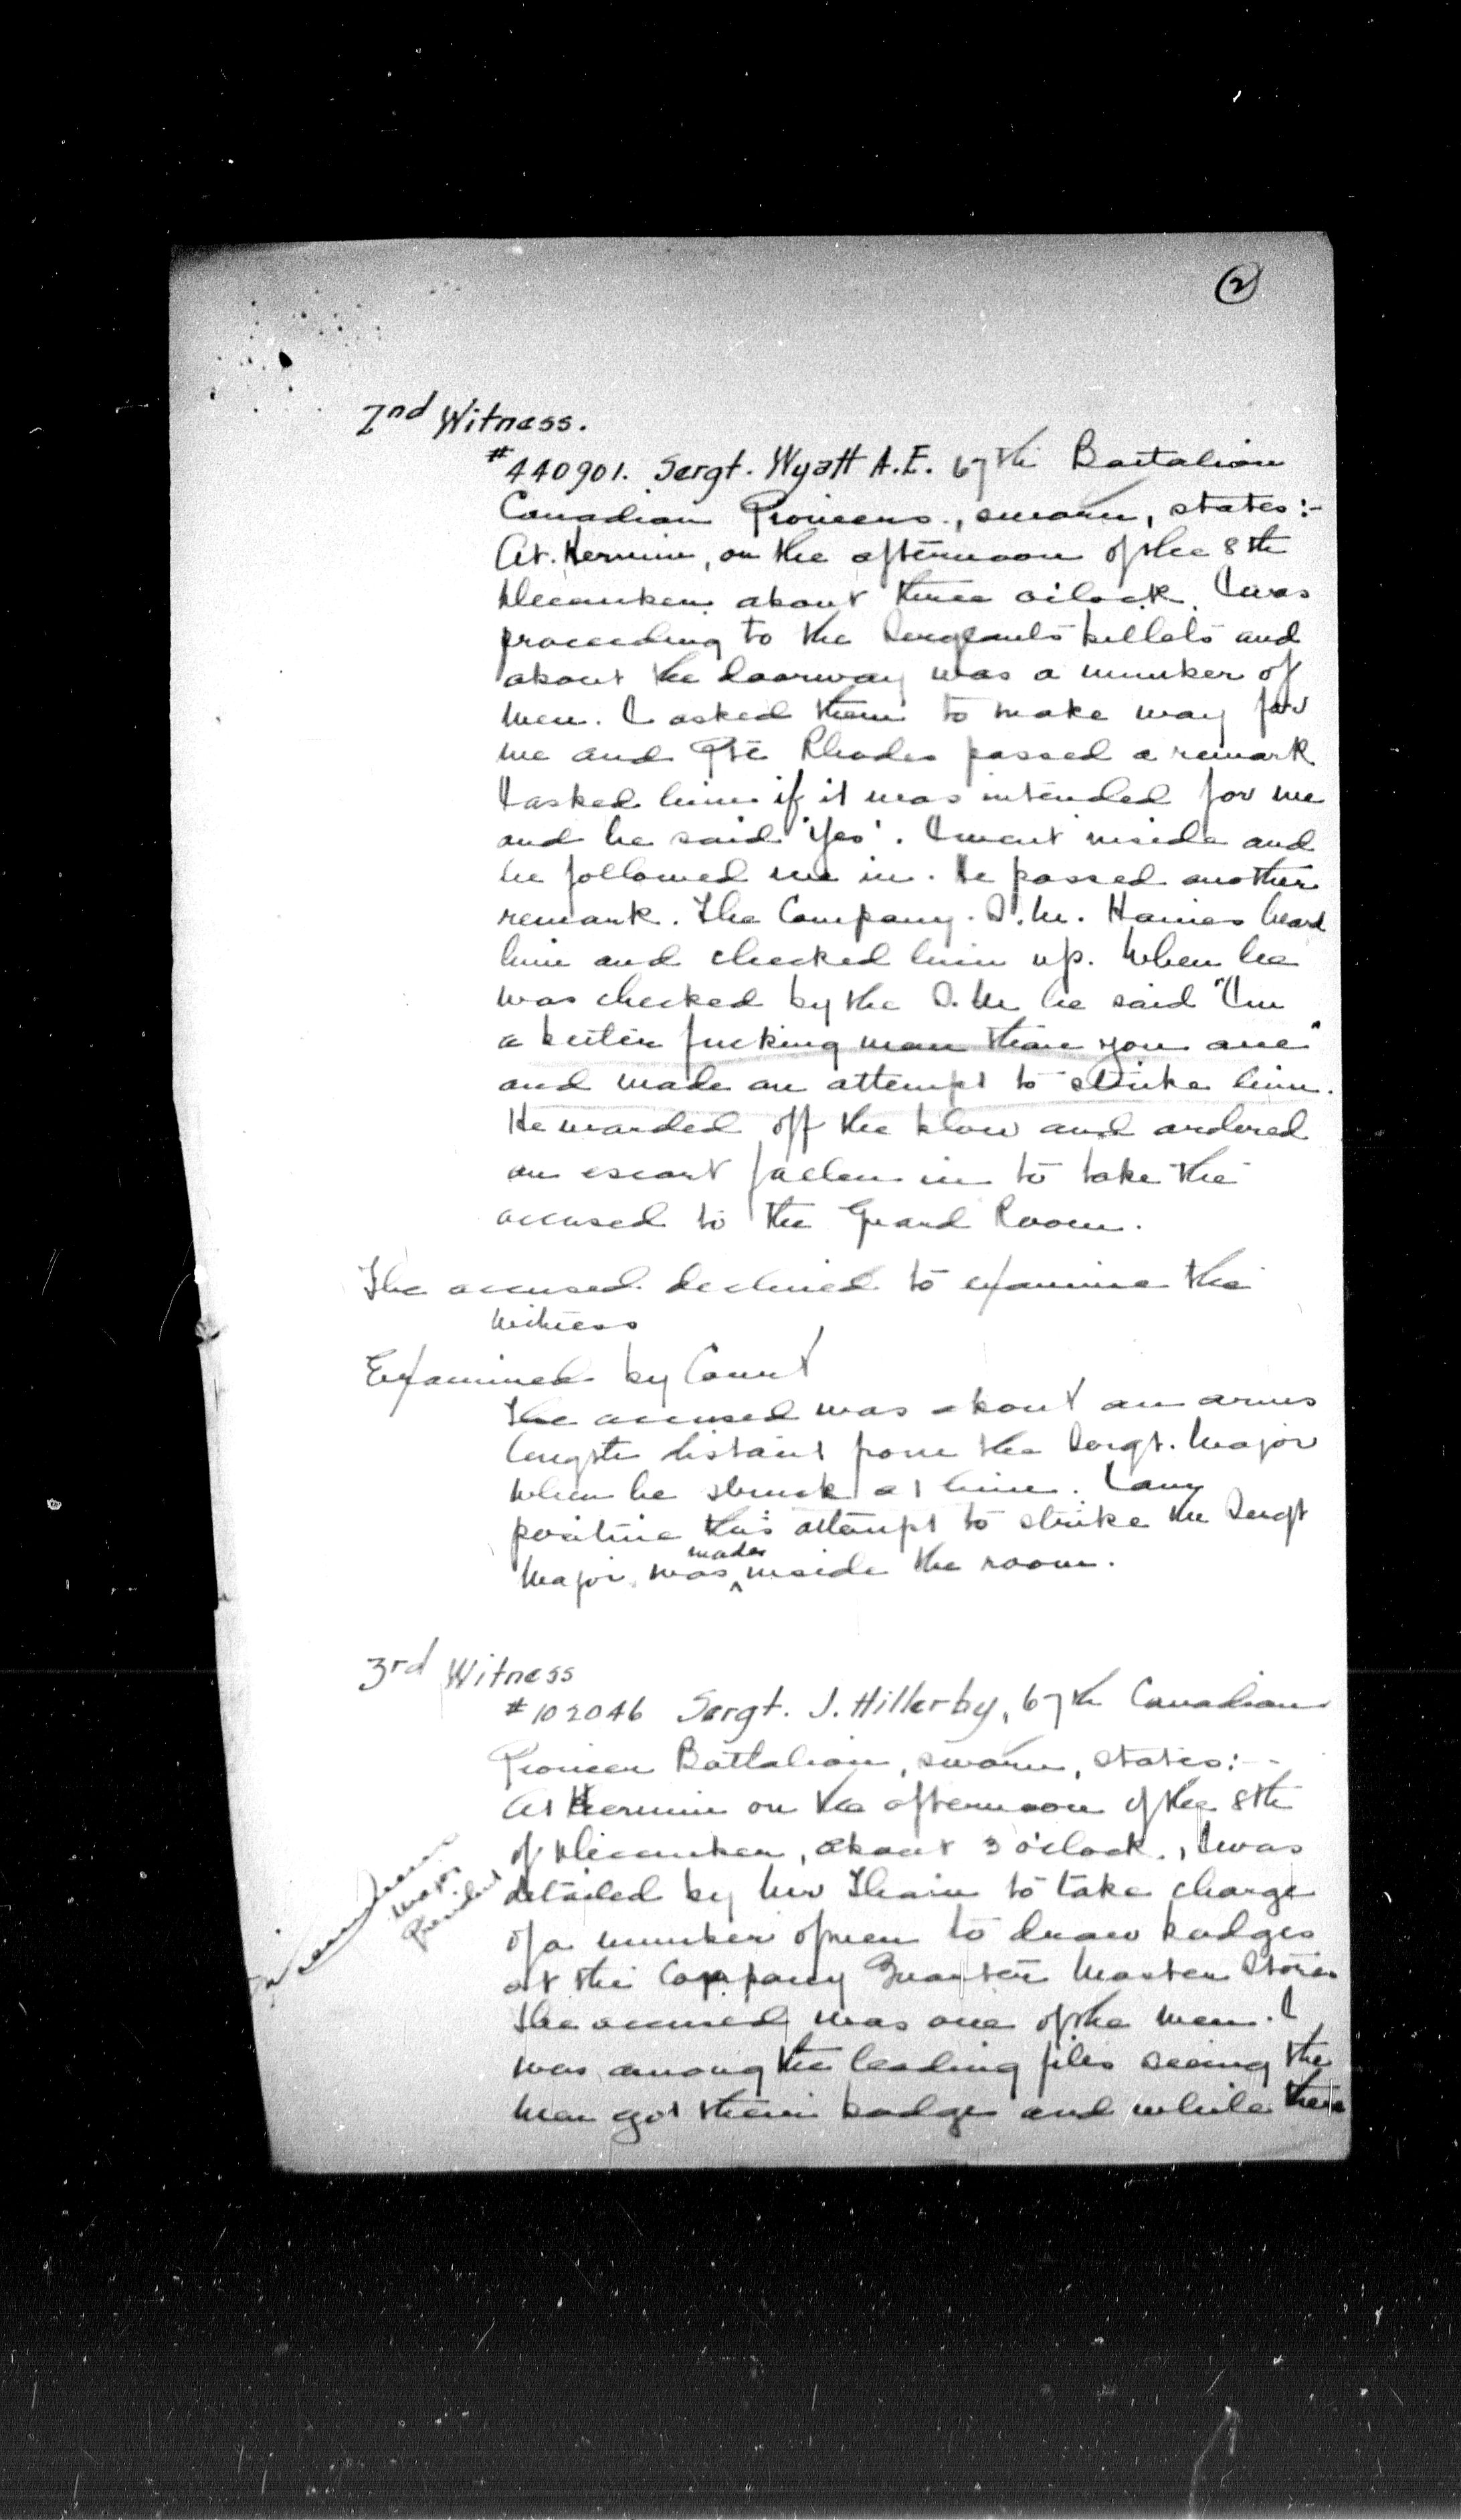 2
2nd Witness.
#440901. Sergt. Wyatt A.E. 67th Battalion
Canadian Pioneers., sworn, states:-
At. Hermin, on the afternoon of the 8th
December about three o'clock. I was
proceeding to the Sergeants billets and
about the doorway was a number of
men. I asked them to make way for
me and Pte Rhodes passed a remark
I asked him if it was intended for me
and he said 'Yes'. I went inside and
he followed me in. He passed another
remark. The Company. S.M. Haines heard
him and checked him up. When he
was checked by the S.M he said "I'm
a better fucking man than you are"
and made an attempt to strike him.
He warded off the blow and ordered
an escort fallen in to take the
accused to the Guard Room.
The accused declined to examine the
Witness
Examined by Court
The accused was about an arms
length distant from the Sergt. Major
when he struck at him. I am
positive this attempt to strike the Sergt
Major was made inside the room.
3rd Witness
#102046 Sergt. J. Hillerby, 67th Canadian
Pioneer Battalion, sworn, states:-
At Hermin on the afternoon of the 8th
of December, about 3 o'clock., I was
detailed by Mr Thain to take charge
of a number of men to draw badges
at the Company Quarter Master Stores
The accused was one of the men. I
was among the leading files seeing the
men got their badges and while there
Major
President